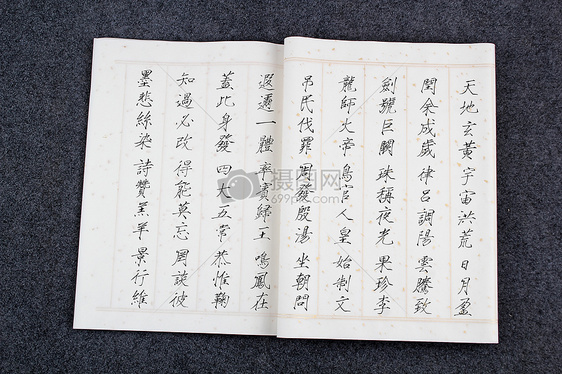 天地玄黃宇宙洪荒日月盈
閏余成歲律呂調陽雲騰致
劍號巨闕珠稱夜光果珍李
龍師火帝鳥官人皇始制文
吊民伐罪周發殷湯坐朝問
遐邇一體率賓歸王鳴鳳在
蓋此身發四大五常恭惟鞠
知過必改得能莫忘罔談彼
墨悲絲染詩贊羔羊景行維
摄图网
699pic.com